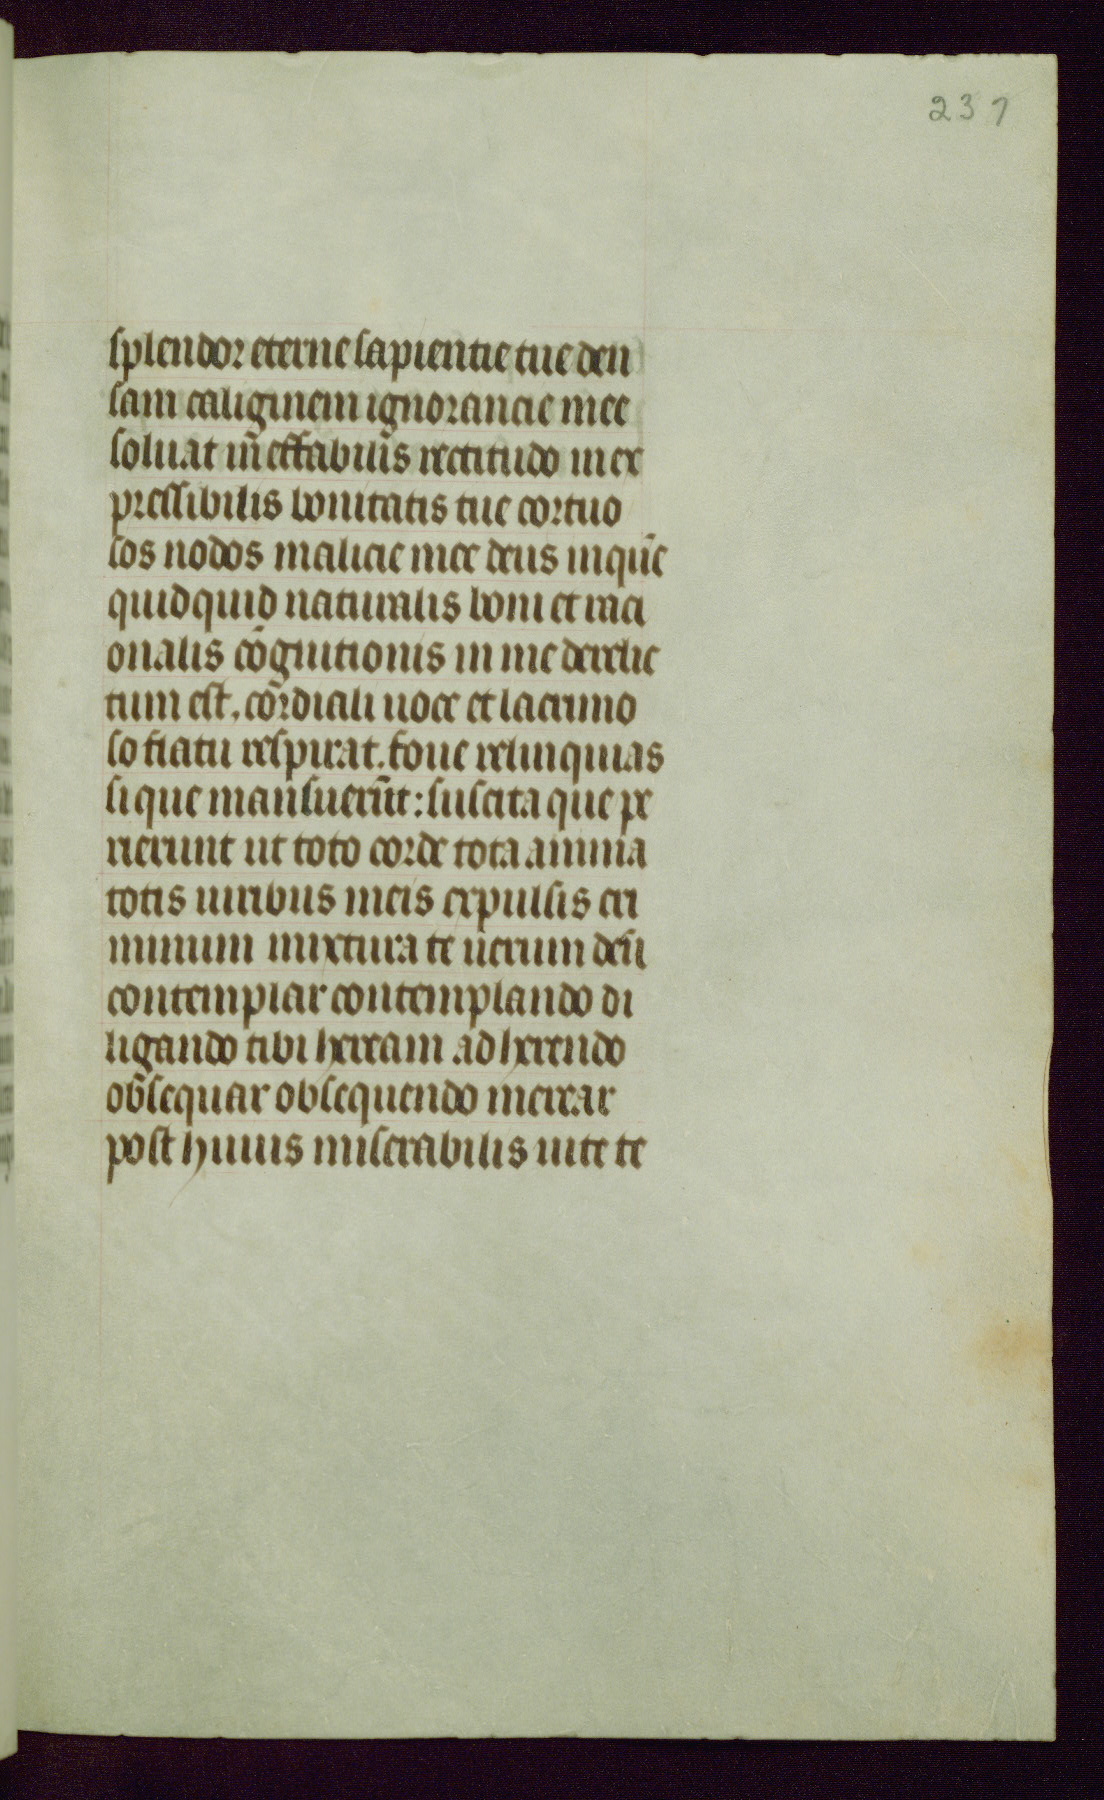 237
splendor eterne sapientie tue den
sam caliginem ignorancie mee
soluat in̄effabilīs rectitudo inex
pressibilis bonitatis tue tortuo
sos nodos malicie mee deus inquē
quidquid naturalis boni et raci
onalis cōgnitionis in me derelic
tum est, cōrdiali uoce et lacrimo
so flatu respirat. foue relinquias
si que man̄suerūt: suscita que pe
rierunt ut toto corde tota anima
totis uiribus meis expulsis cri
minum mixtura te uerum deū
contemplar contemplando di
ligando tibi heream adherendo
ob̄sequar obsequendo merear
post huius miserabilis uite te